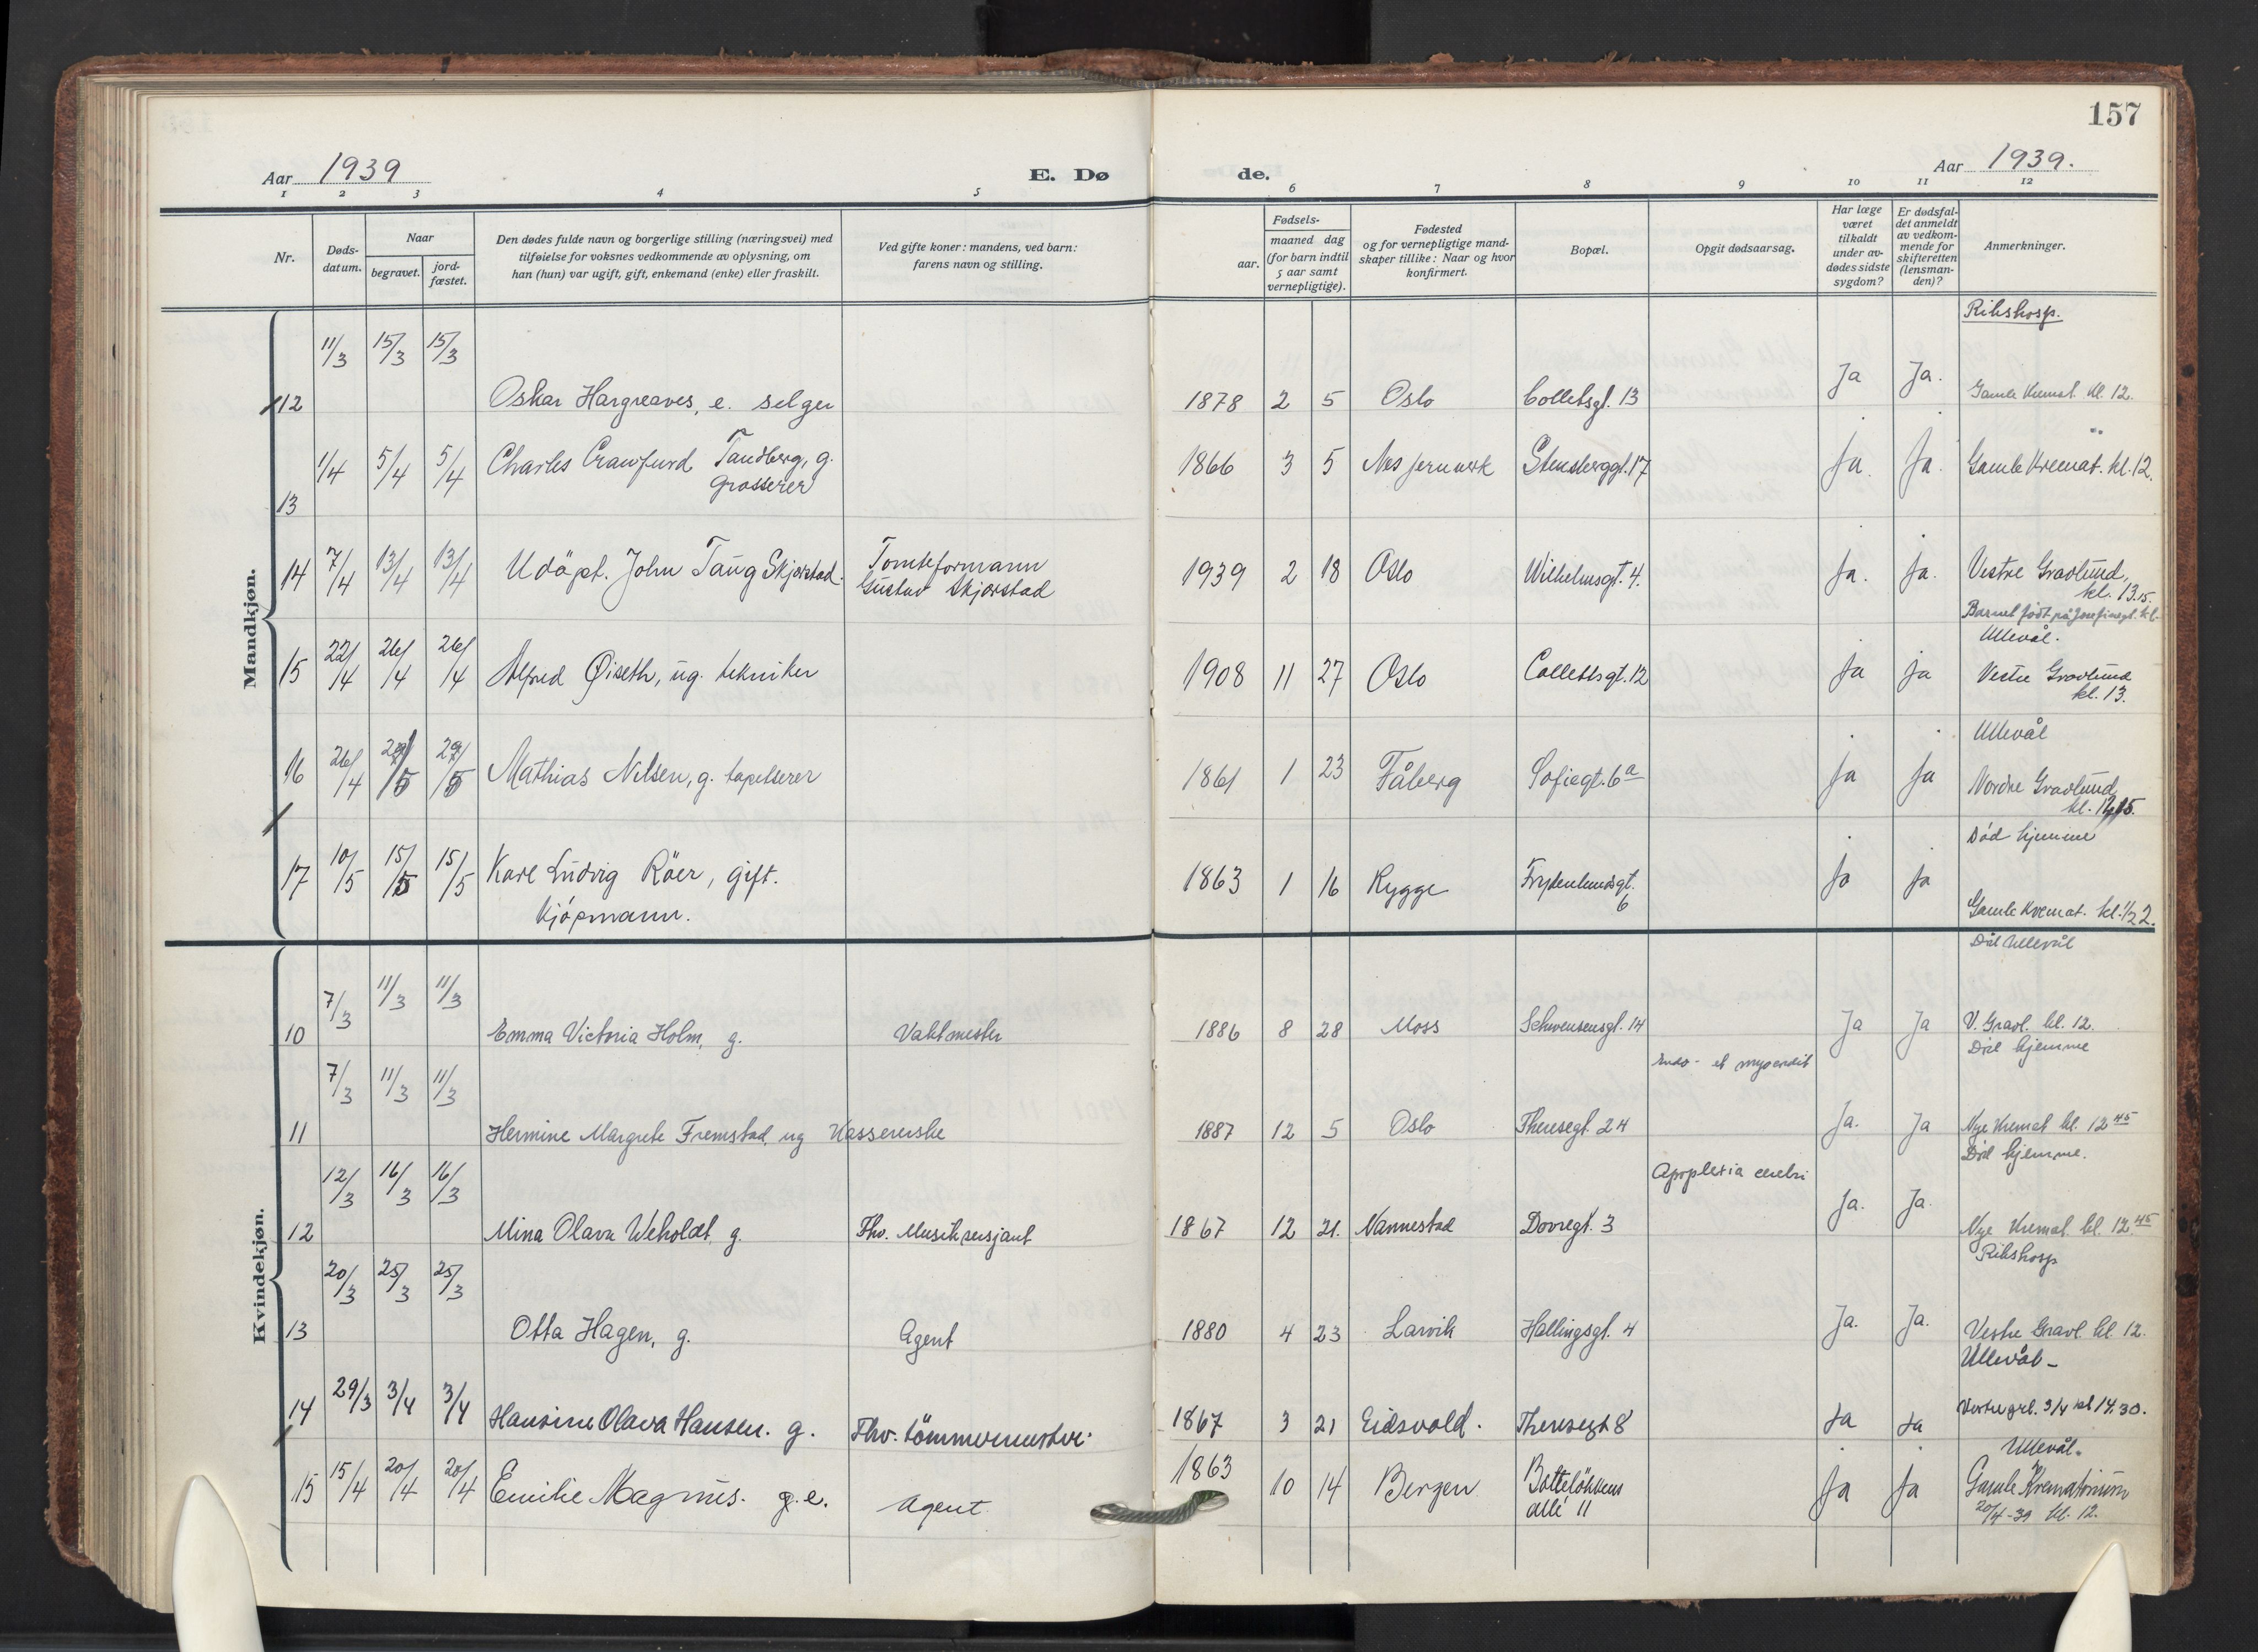 157
Aar 1939
E. Dø
de.
Aar 1939.
1 2 3 4 5 6 7 8 9 10 11 12
Nr.
Døds-
datum.
Naar
begravet.
jord-
fæstet.
Den dødes fulde navn og borgerlige stilling (næringsvei) med
tilføielse for voksnes vedkommende av oplysning, om
han (hun) var ugift, gift, enkemand (enke) eller fraskilt.
Ved gifte koner: mandens, ved barn:
farens navn og stilling.
Fødsels-
aar.
maaned dag
(for barn indtil
5 aar samt
vernepligtige).
Fødested
og for vernepligtige mand-
skaper tillike: Naar og hvor
konfirmert.
Bopæl.
Opgit dødsaarsag.
Har læge
været
tilkaldt
under av-
dødes sidste
sygdom?
Er dødsfal-
det anmeldt
av vedkom-
mende for
skifteretten
(lensman-
den)?
Anmerkninger.
Mandkjøn.
Rikshosp.
11/3 15/3 15/3
12 Oskar Hargreaves, e. selger 1878 2 5 Oslo Colletsgt. 13 Ja Ja. Gamle Kremat. kl. 12.
"
13 1/4 5/4 5/4 Charles Crawfurd Tandberg, g. 1866 3 5 Nes jernverk Stensberggt. 17 Ja. Ja. Gamle Kremat. kl. 12.
Grosserer
14 7/4 13/4 13/4 Udöpt. John Taug Skjørstad. Tomteformann 1939 2 18 Oslo Wilhelmsgt. 4. Ja. Ja. Vestre Gravlund,
Gustav Skjørstad kl. 13.15.
Barnet født på Josefinesgt. kl.
Ullevål.
15 22/4 26/4 26/4 Alfred Øiseth, ug. tekniker 1908 11 27 Oslo Collettsgt. 12 Ja ja Vestre Gravlund
kl. 13.
Ullevål
16 26/4 Mathias Nilsen, g. tapetserer 1861 1 23 Fåberg Sofiegt. 6a Ja Ja Nordre Gravlund
kl.
Död hjemme
17 10/5 15/5 15/5 Karl Ludvig Röer, gift. 1863 1 16 Rygge Frydenlundsgt. Ja Ja
Kjöpmann. 6 Gamle Kremat. kl. 1/2 2.
Kvindekjøn.
Död Ullevål
7/3 11/3 11/3
10 Emma Victoria Holm, g. Vaktmester 1886 8 28 Moss Schwensensgt. 14 Ja Ja V. Gravl. kl. 12.
Död hjemme
7/3 11/3 11/3 Endo- et myocardit
11 Hermine Margrete Fremstad, ug Kassererske 1887 12 5 Oslo Theresegt. 24 Ja. Ja Nye Kremat kl. 12 45
Död hjemme.
12/3 16/3 16/3 Apoplexia cerebri
12 Mina Olava Weholdt, g. Fhv. Musikersjant 1867 12 21. Nannestad Dovregt. 3 Ja. Ja. Nye Kremat. kl. 12.45
Rikshosp
20/3 25/3 25/3
13 Otta Hagen, g. Agent 1880 4 23 Larvik Hallingsgt. 4 Ja. Ja. Vestre Gravl. kl. 12.
Ullevål-
14 29/3 3/4 3/4 Hansine Olava Hansen. g. Fhv. tömmermester. 1867 3 21 Eidsvold. Theresegt 8 Ja Ja Vestre grl. 3/4 kl 14.30.
Ullevål.
15 15/4 20/4 20/4 Emilie Magnus. g.e. Agent 1863 10 14 Bergen Bolteløkkens Ja Ja Gamle Krematorium
allé 11 20/4-39 kl. 12.